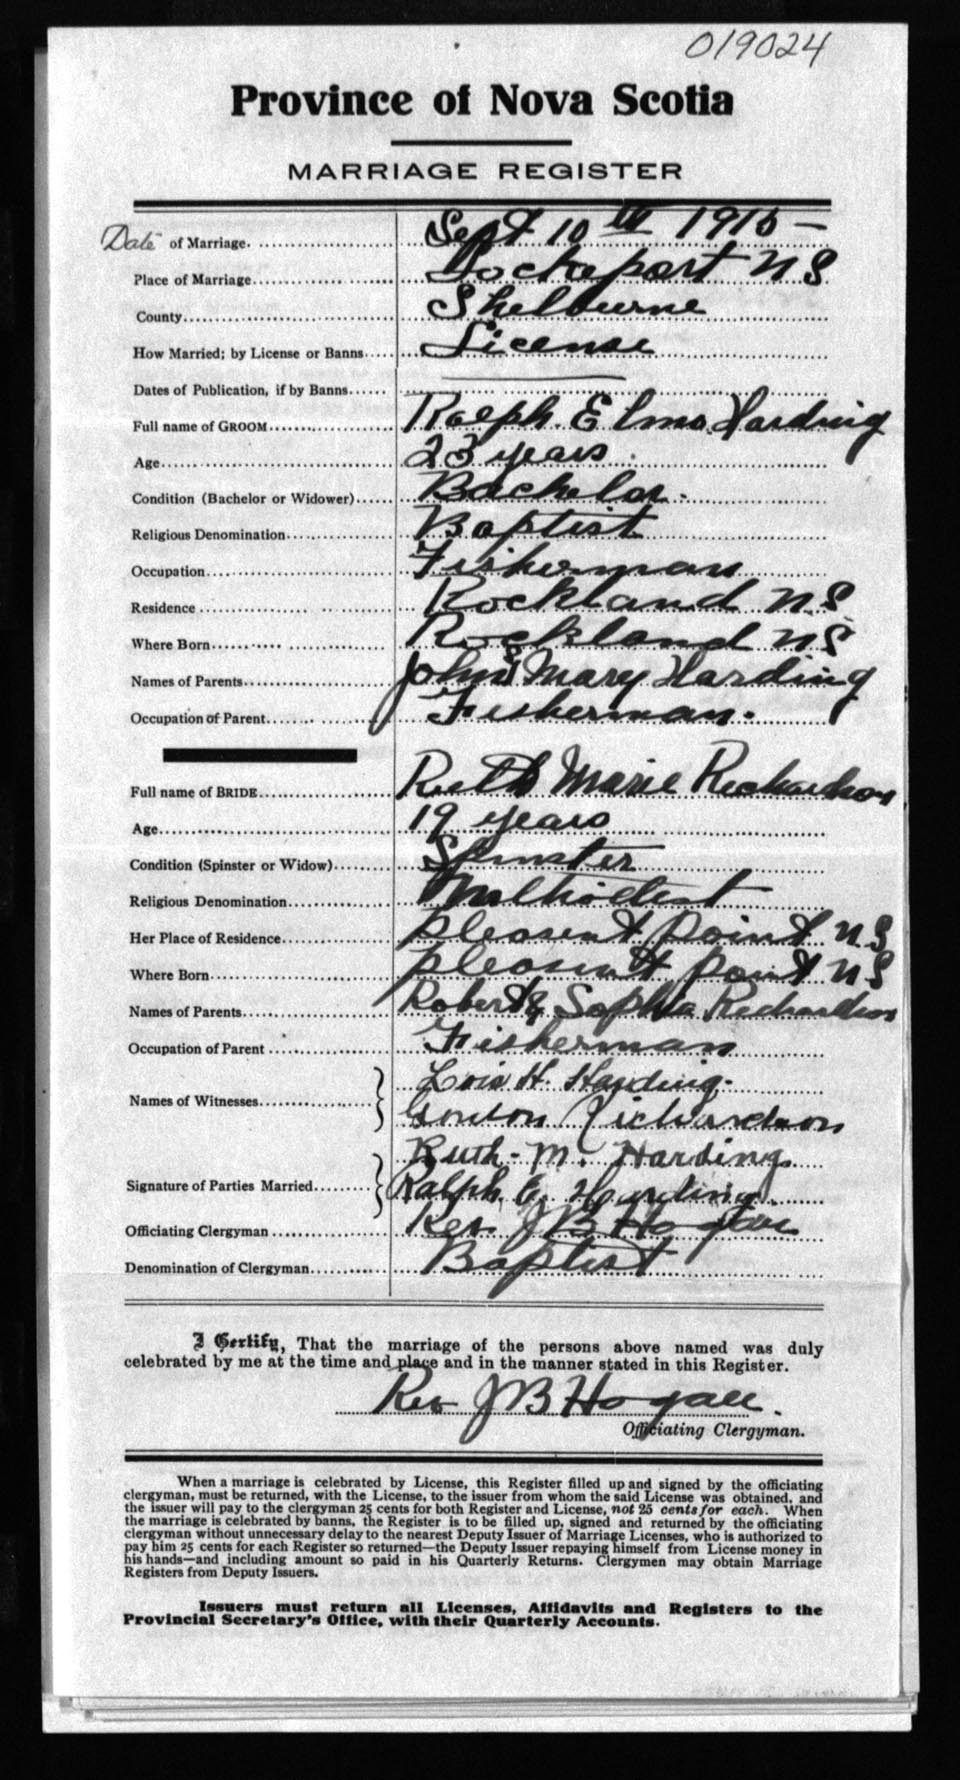 019024
Province of Nova Scotia
MARRIAGE REGISTER
Date of Marriage. Sept 10th 1916 –
Place of Marriage Lockeport N S
County Shelburne
How Married; by License or Banns License
Dates of Publication, if by Banns
Full name of GROOM Ralph Elmo Harding
Age 23 years
Condition (Bachelor or Widower) Bachelor.
Religious Denomination Baptist
Occupation Fisherman
Residence Rockland N.S
Where Born Rockland N S
Names of Parents John & Mary Harding
Occupation of Parent Fisherman.
Full name of BRIDE Ruth Marie Richardson
Age 19 years
Condition (Spinster or Widow) Spinster
Religious Denomination Methodist
Her Place of Residence Pleasant Point N S
Where Born Pleasant Point N S
Names of Parents Robert & Sophia Richardson
Occupation of Parent Fisherman
Names of Witnesses Lois H. Harding.
Gordon Richardson
Ruth - M. Harding
Signature of Parties Married Ralph E. Harding
Officiating Clergyman Rev J B
Denomination of Clergyman Baptist
I Certify, That the marriage of the persons above named was duly
celebrated by me at the time and place and in the manner stated in this Register.
Rev J B
Officiating Clergyman.
When a marriage is celebrated by License, this Register filled up and signed by the officiating
clergyman, must be returned, with the License, to the issuer from whom the said License was obtained, and
the issuer will pay to the clergyman 25 cents for both Register and License, not 25 cents for each. When
the marriage is celebrated by banns, the Register is to be filled up, signed and returned by the officiating
clergyman without unnecessary delay to the nearest Deputy Issuer of Marriage Licenses, who is authorized to
pay him 25 cents for each Register so returned—the Deputy Issuer repaying himself from License money in
his hands—and including amount so paid in his Quarterly Returns. Clergymen may obtain Marriage
Registers from Deputy Issuers.
Issuers must return all Licenses, Affidavits and Registers to the
Provincial Secretary's Office, with their Quarterly Accounts.